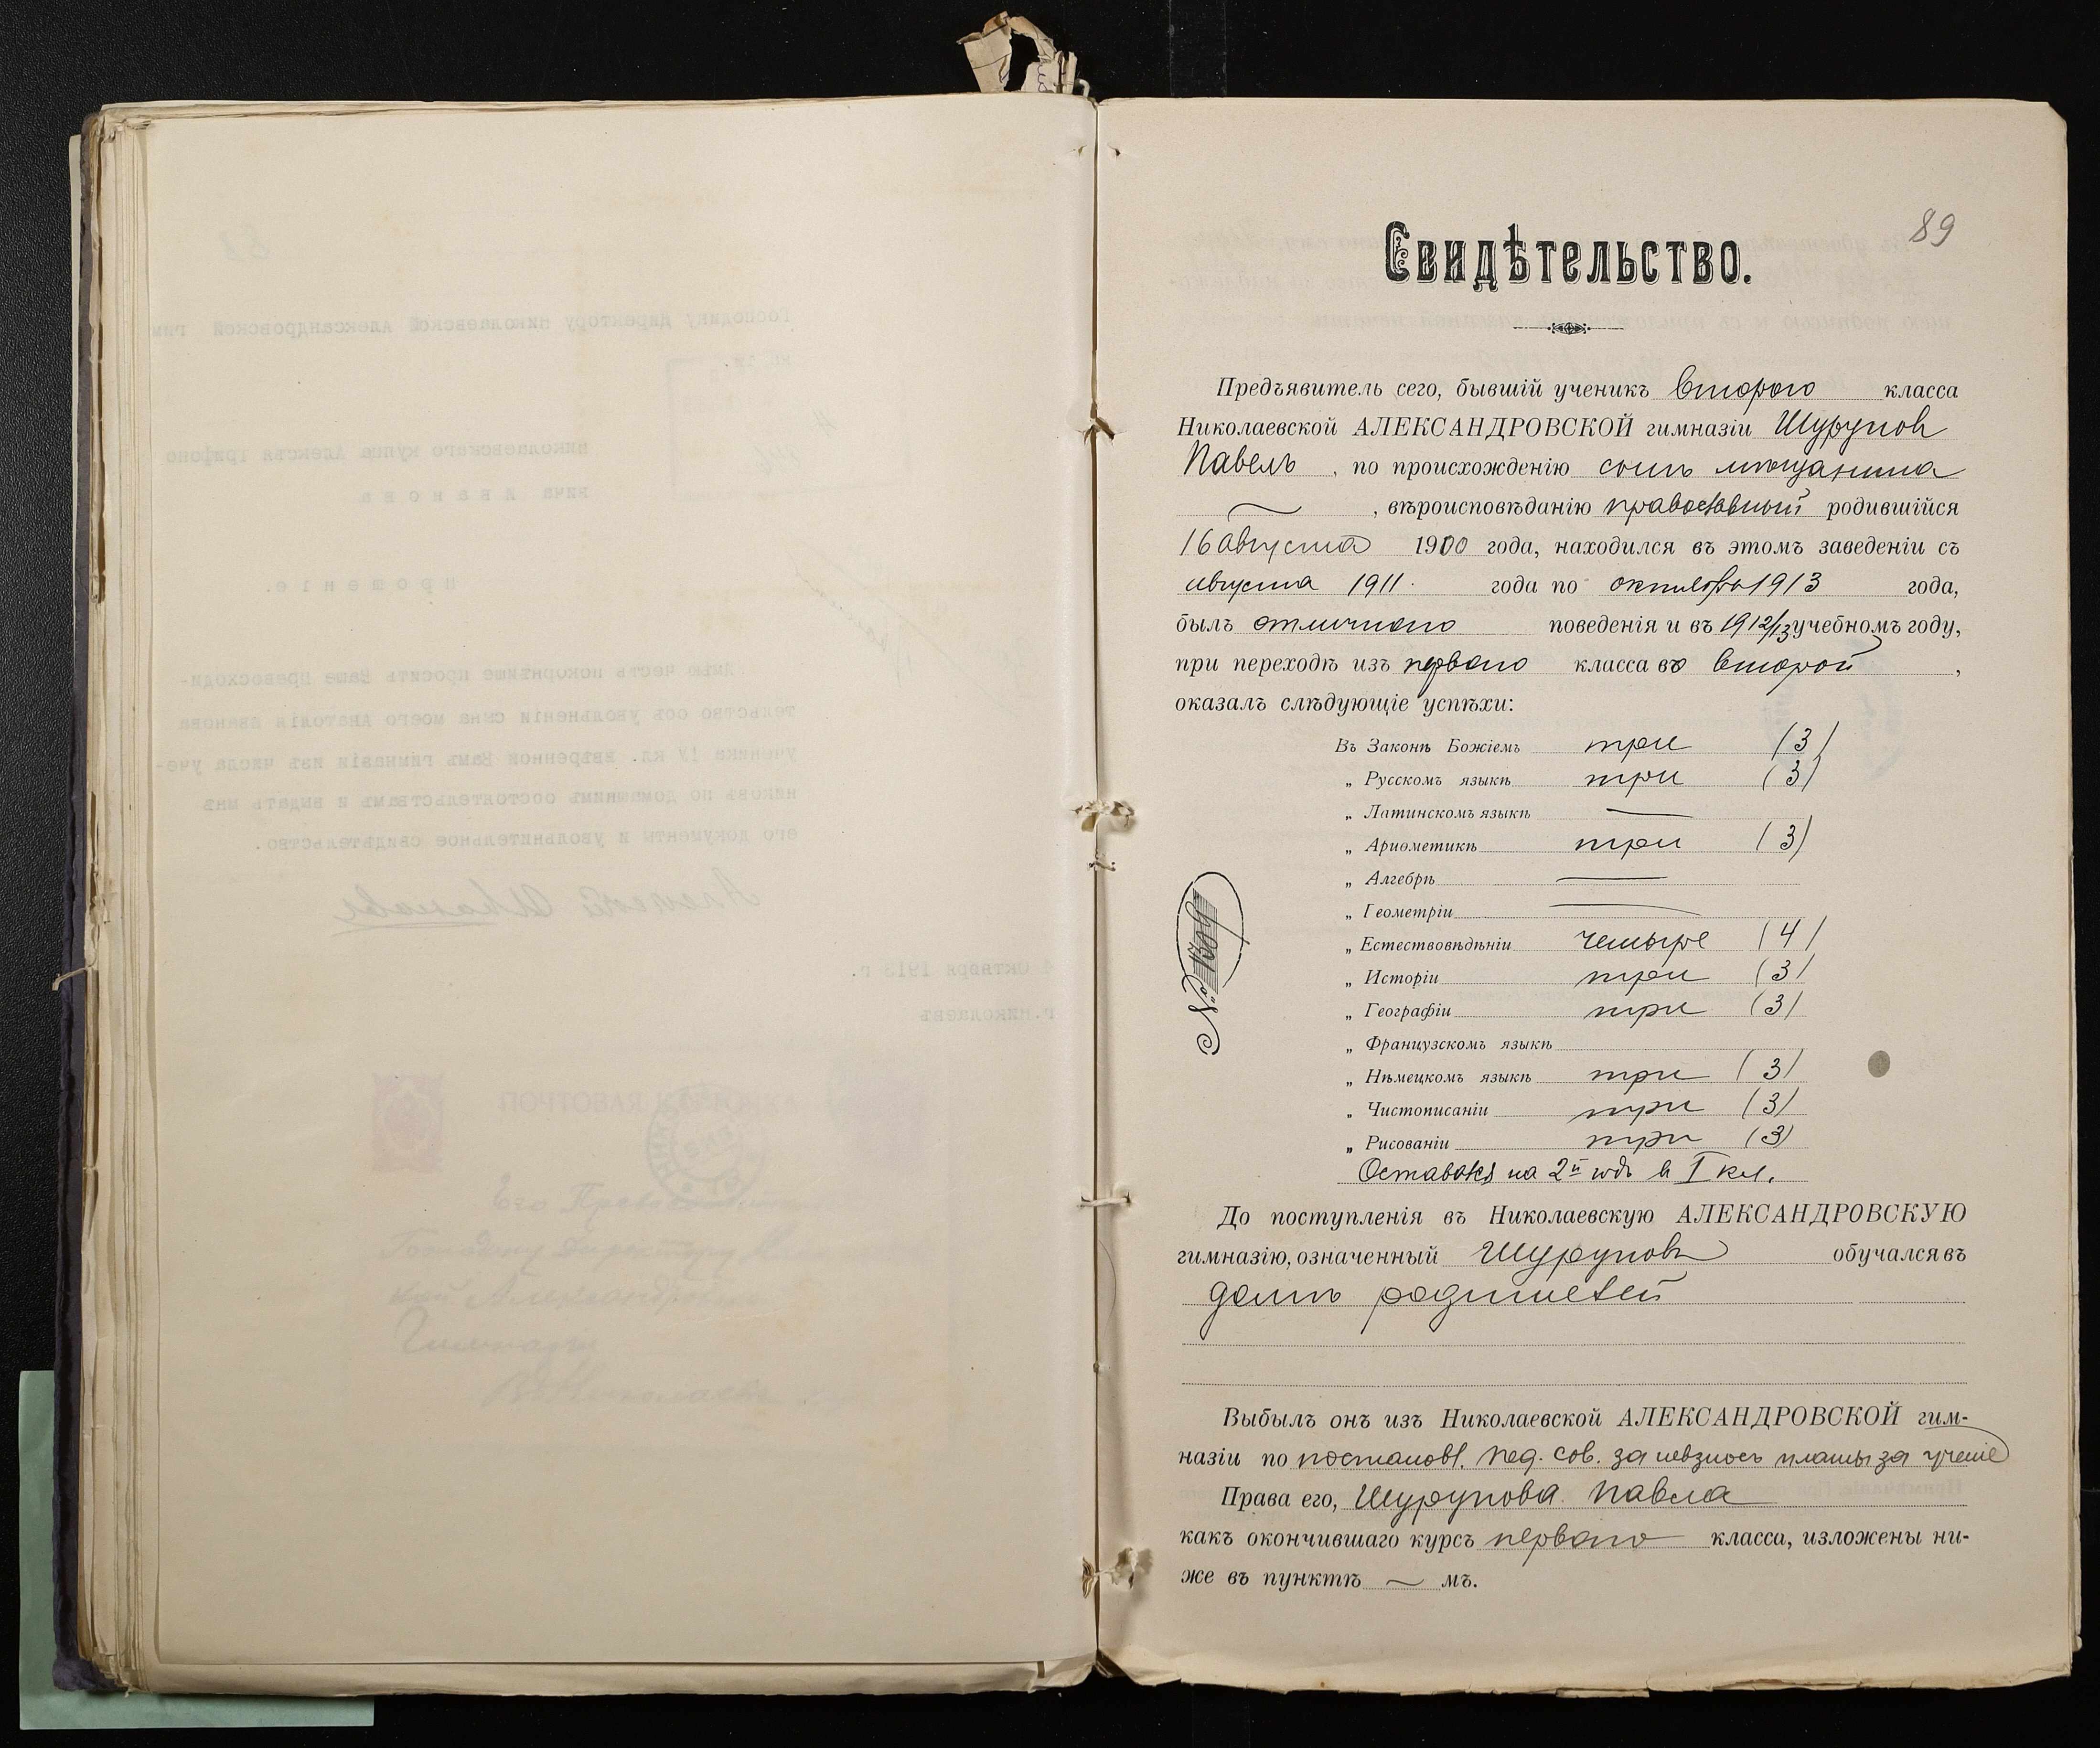 89
Свидѣтельство.
Предъявитель сего, бывшій ученикъ второго класса
Николаевской АЛЕКСАНДРОВСКОЙ гимназіи Шурупов
Павелъ, по происхожденію сынъ мѣщанина
, вѣроисповѣданію православный родившійся
16 августа 1900 года, находился въ этомъ заведеніи съ
августа 1911 года по октябрь 1913 года,
былъ отличнаго поведенія и въ 1912/13 учебномъ году,
при переходѣ изъ перваго класса во второй,
оказалъ слѣдующіе успѣхи:
Въ Законѣ Божіемъ три (3)
„ Русскомъ языкѣ три (3)
„ Латинскомъ языкѣ —
„ Ариѳметикѣ три (3)
„ Алгебрѣ —
„ Геометріи —
„ Естествовѣдѣніи четыре (4)
„ Исторіи три (3)
„ Географіи три (3)
„ Французскомъ языкѣ
„ Нѣмецкомъ языкѣ три (3)
„ Чистописаніи три (3)
„ Рисованіи три (3)
Оставался на 2й годъ в I кл.
№ 1309
До поступленія въ Николаевскую АЛЕКСАНДРОВСКУЮ
гимназію, означенный Шуруповъ обучался въ
домѣ родителей
Выбылъ онъ изъ Николаевской АЛЕКСАНДРОВСКОЙ гим-
назіи по постановл. пед. сов. за невзносъ платы за ученіе
Права его, Шурупова Павла
какъ окончившаго курсъ перваго класса, изложены ни-
же въ пунктѣ — мъ.